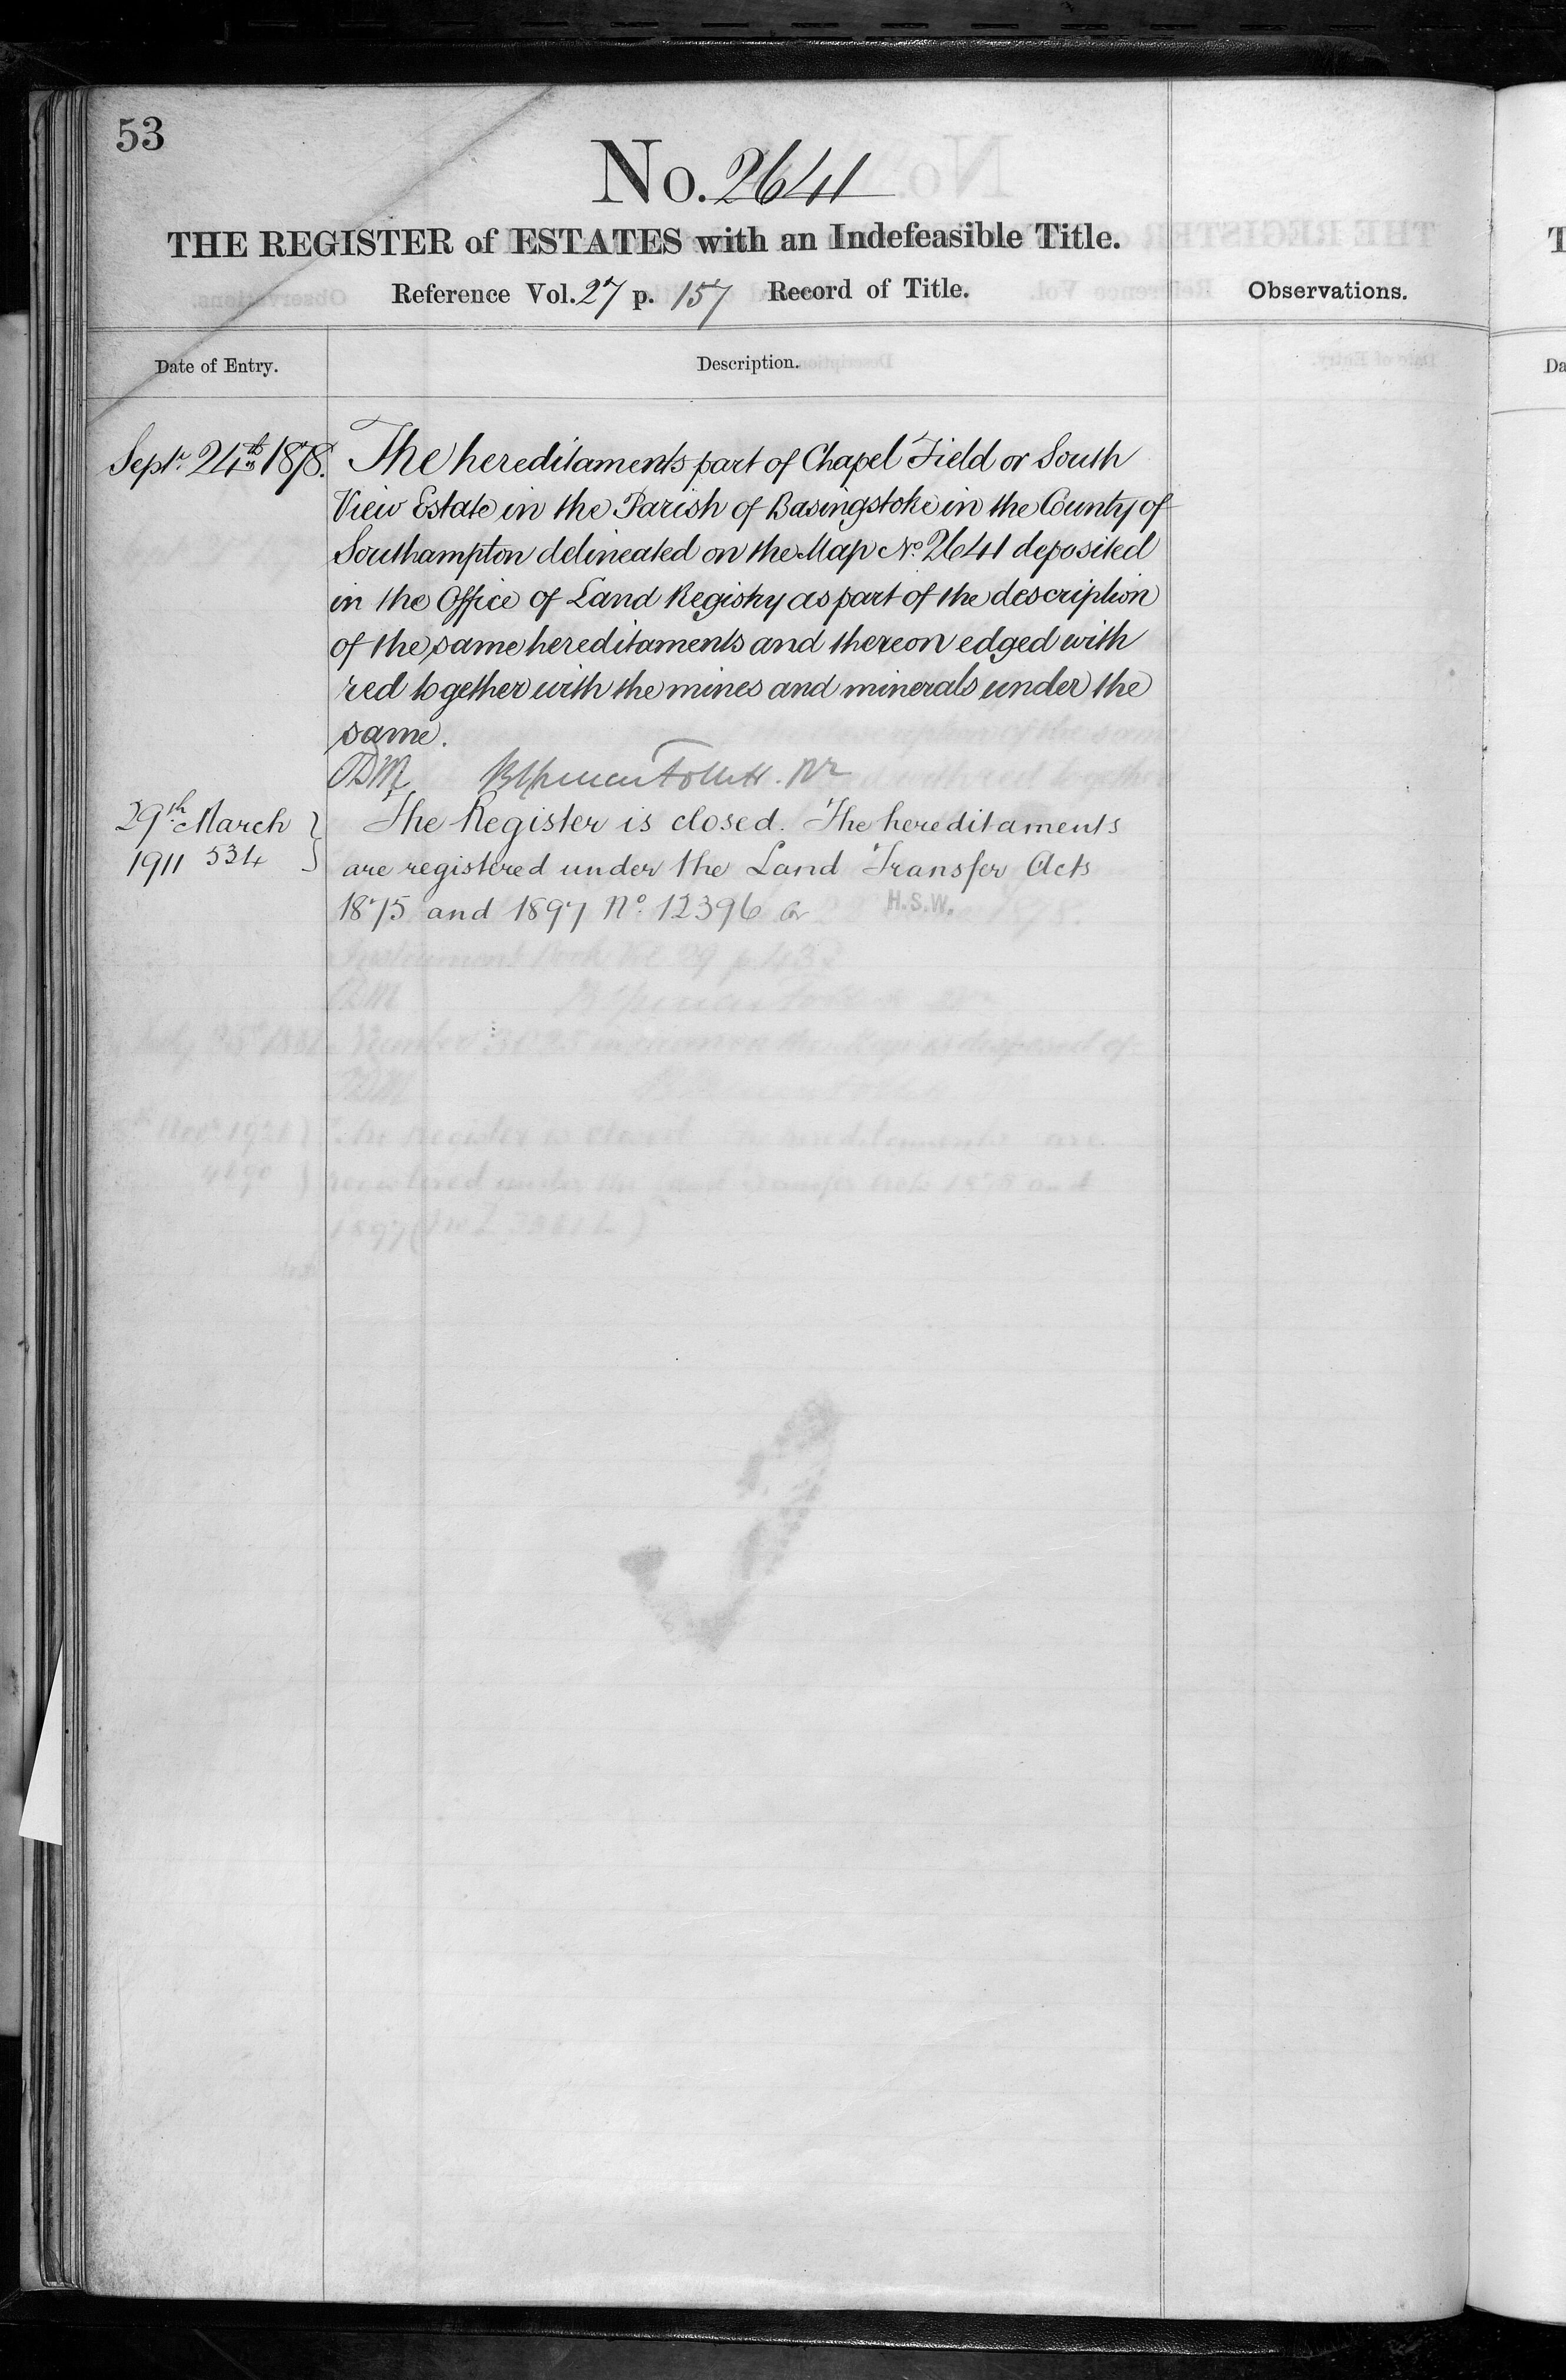 53
No. 2641
THE REGISTER of ESTATES with an Indefeasible Title.
Reference Vol. 27 p. 157 Record of Title.
Observations.
Date of Entry.
Description.
Septr. 24th 1878.
The hereditaments part of Chapel Field or South
View Estate in the Parish of Basingstoke in the County of
Southampton delineated on the Map No. 2641 deposited
in the Office of Land Registry as part of the description
of the same hereditaments and thereon edged with
red together with the mines and minerals under the
same.
29th March
1911 534
The Register is closed. The hereditaments
are registered under the Land Transfer Acts
1875 and 1897 No. 12396
H.S.W.